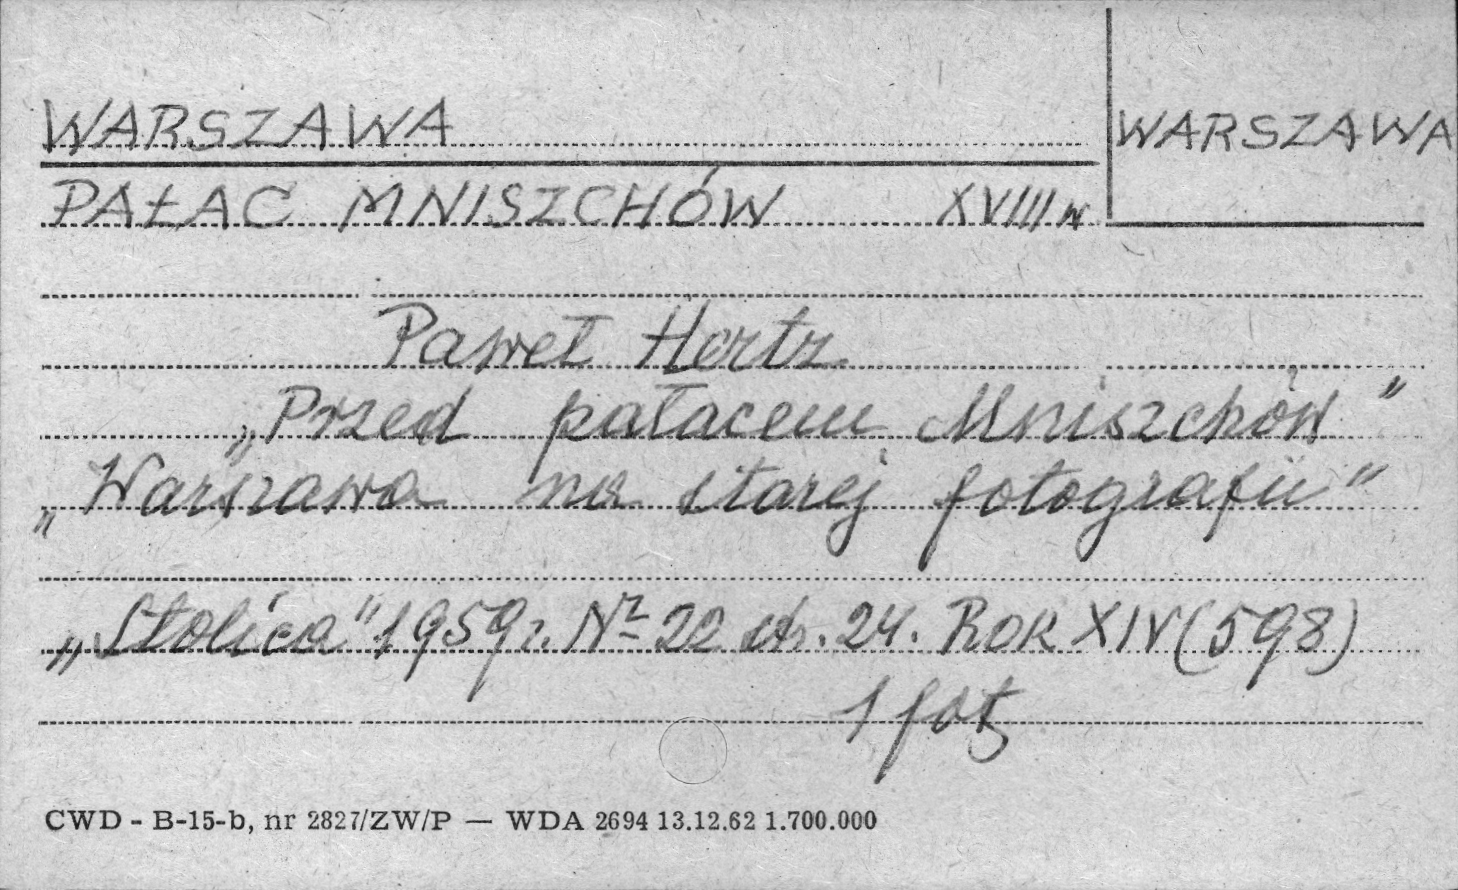 WARSZAWA
WARSZAWA
PAŁAC MNISZCHÓW XVIII w
Paweł Hertz
„Przed pałacem Mniszchów"
„Warszawa na starej fotografii"
„Stolica" 1959 r. Nr 22 str. 24. Rok XIV (598)
1 fot
CWD - B-15-b, nr 2827/ZW/P — WDA 2694 13.12.62 1.700.000